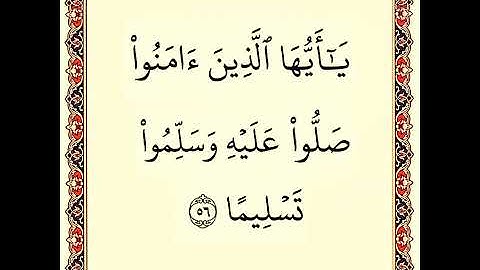 يَـٰٓأَيُّهَا ٱلَّذِينَ ءَامَنُوا۟
صَلُّوا۟ عَلَيْهِ وَسَلِّمُوا۟
تَسْلِيمًا ۝٥٦